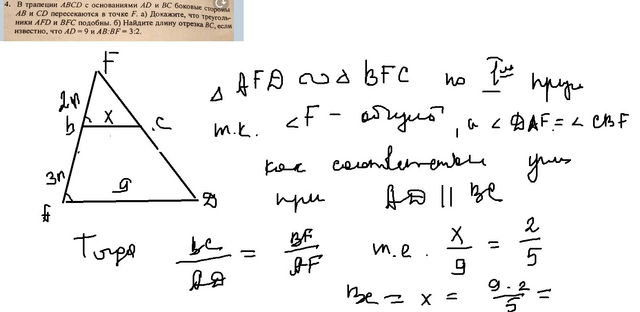 4. В трапеции ABCD с основаниями AD и BC боковые стороны
AB и CD пересекаются в точке F. а) Докажите, что треуголь-
ники AFD и BFC подобны. б) Найдите длину отрезка BC, если
известно, что AD = 9 и AB:BF = 3:2.
F
2n
B x C
3n
9
A D
△ AFD ∾ △ BFC по I^му призн
т.к. ∠F - общий, а ∠DAF = ∠CBF
как соответственные углы
при AD || BC
Тогда BC/AD = BF/AF т.е. x/9 = 2/5
BC = x = 9·2/5 =